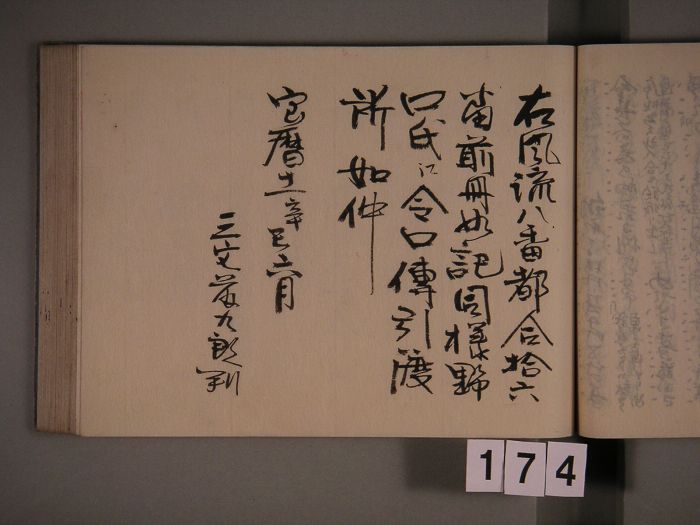 右風流八番都合拾六
番前冊如記同様野
口氏江令口傳引渡
所如件
宝暦十一辛巳六月
三宅藤九郎判
174